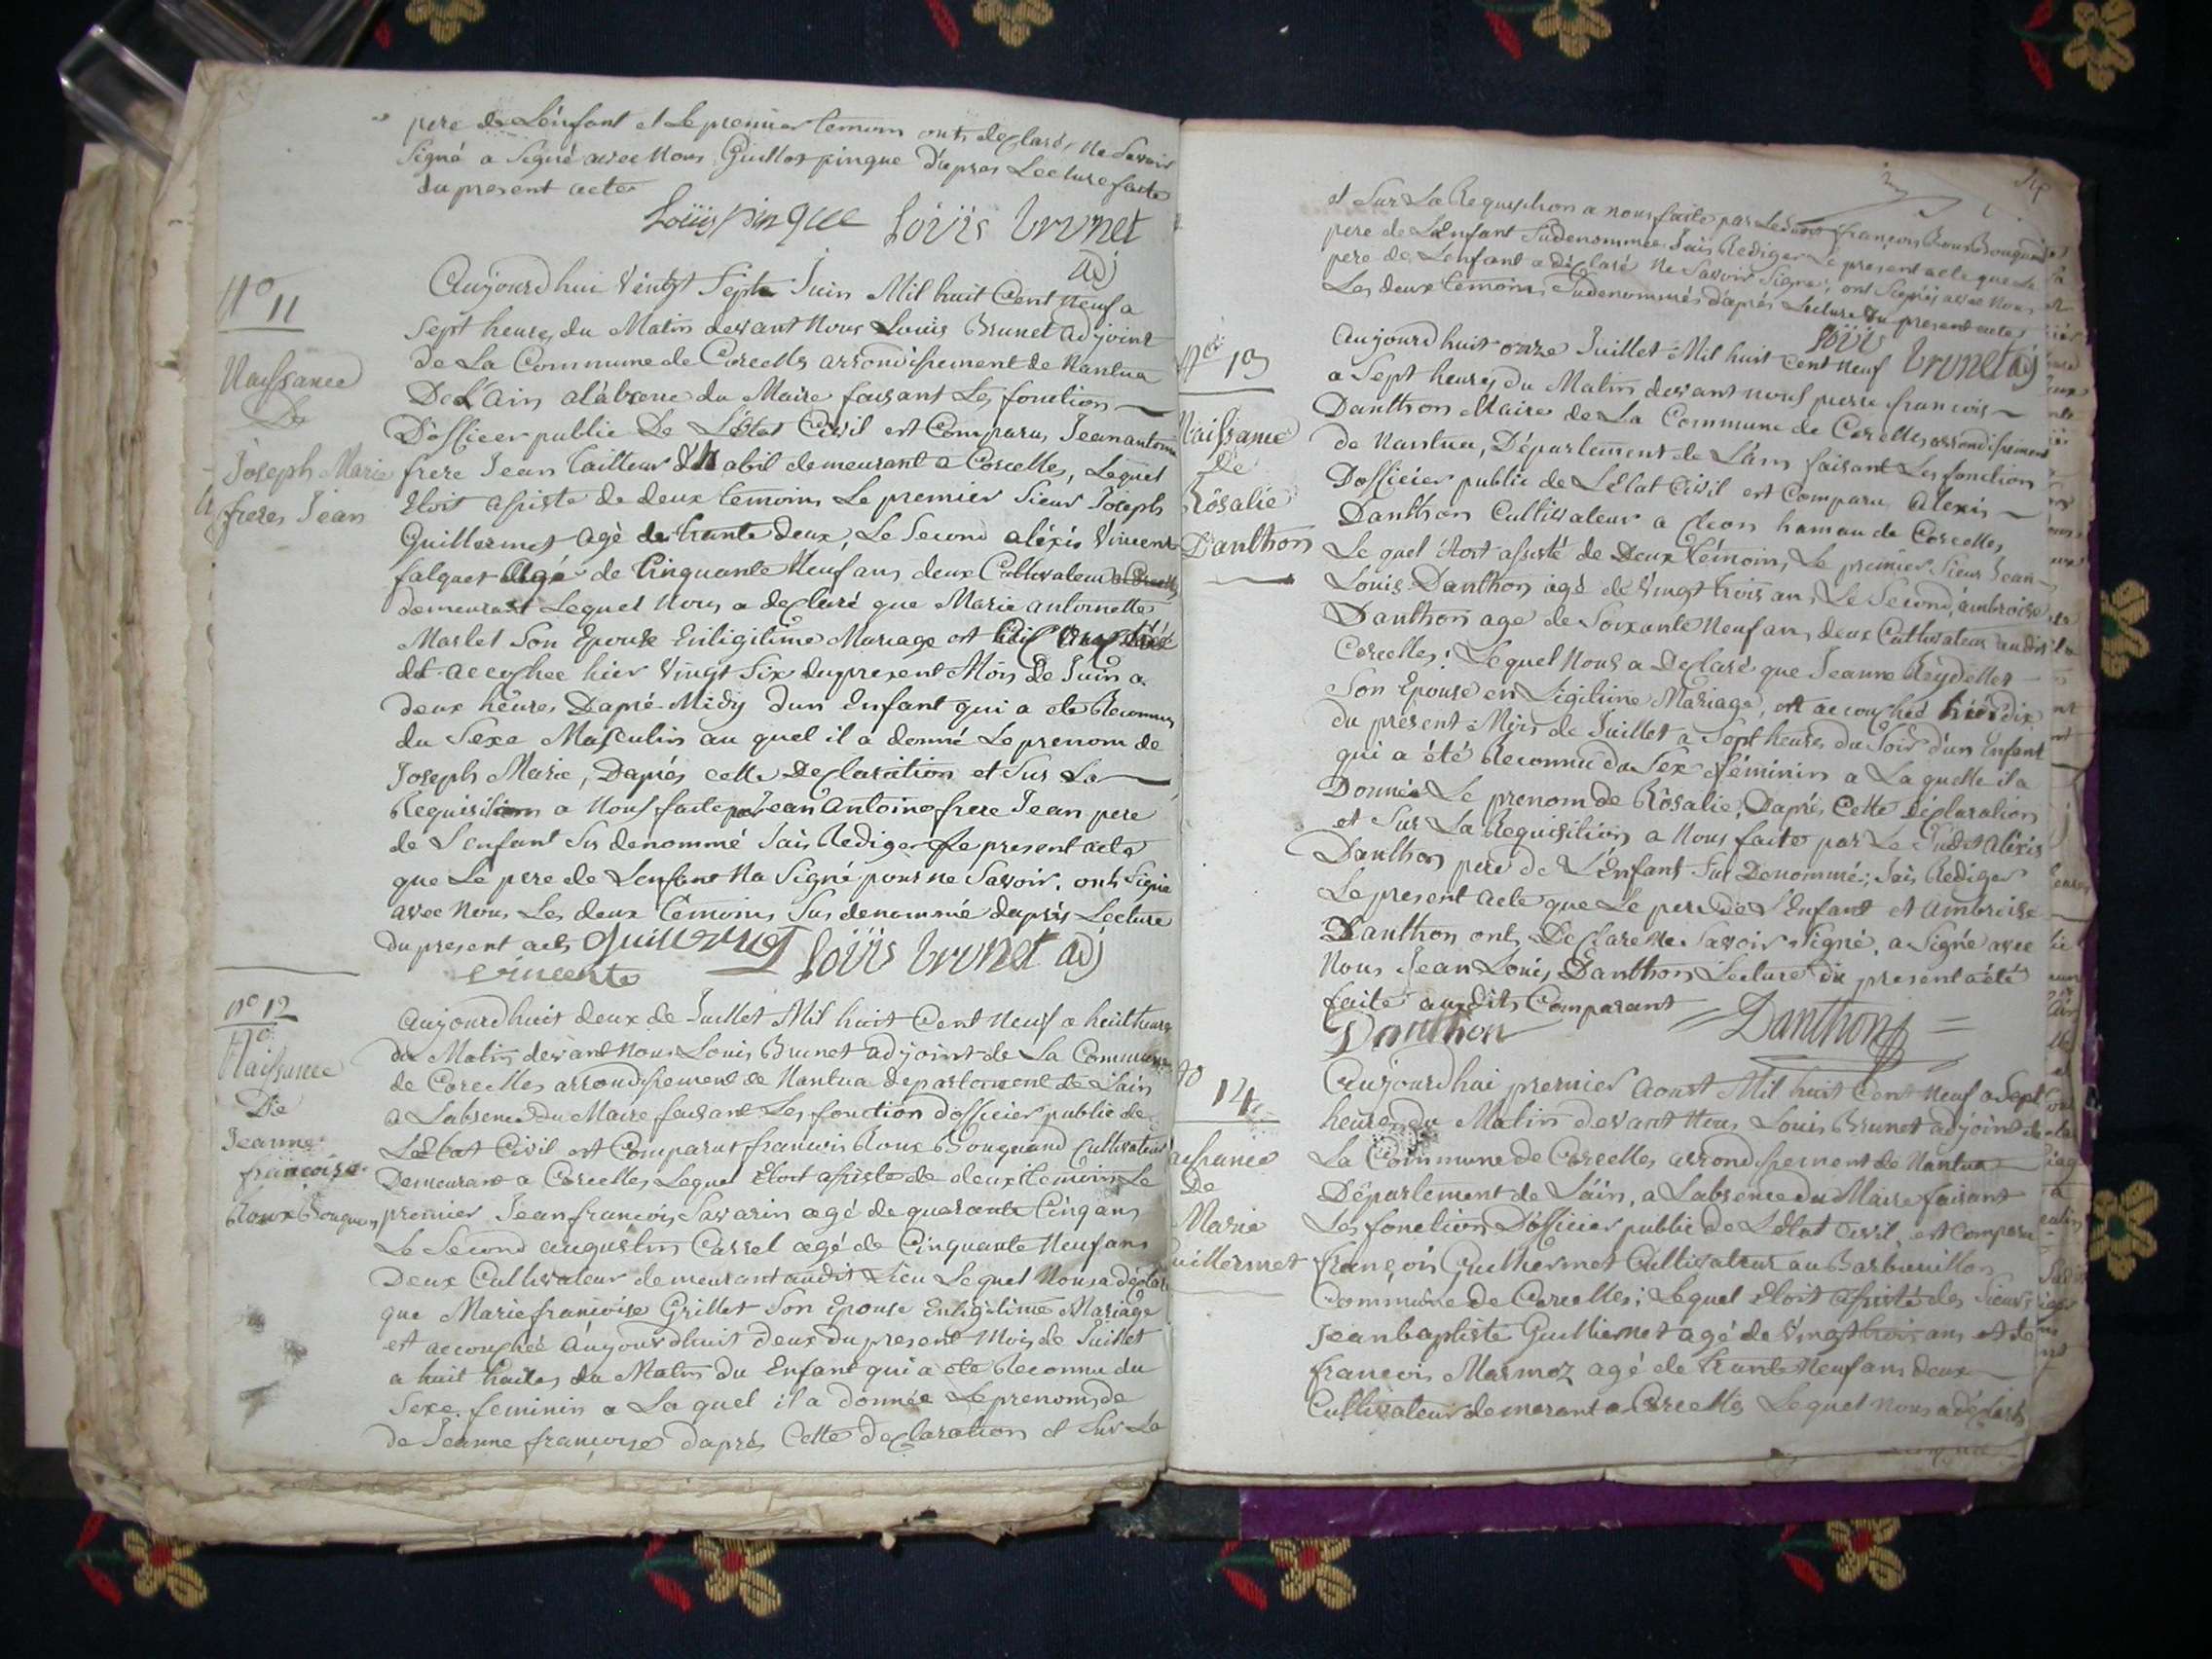 pere de Lenfant et Le premier temoin onts declaré, ne Savoir
Signé a Signé avec Nous Guillot pingue d'apres Lecture faite
du present acte
Loüis pingue Loüis brunet
adj
N° 11
Naissance
De
Joseph Marie
freres Jean
Aujourdhui Vingt Septe Juin Mil huit Cent Neuf a
Sept heures du Matin devant Nous Louis Brunet adjoint
de La Commune de Corcelles arrondissement de Nantua
De L'Ain al'absence du Maire faisant Les fonction
D'officier public De L'état Civil est Comparus Jean antoine
frere Jean tailleur d'habit demeurant a Corcelles, Lequel
Etoit assisté de deux temoins Le premier Sieur Joseph
Guillermet agé de trante deux, Le Second aléxis Vincent
falquet Agé de Cinquante Neuf ans deux Cultivateur
demeurant Lequel Nous a declaré que Marie antoinette
Marlet Son Epouse Enligitime Mariage est
et accochée hier Vingt Six du present Mois de Juin a
deux heures Dapré Midy dun Enfant qui a ete Reconnus
du Sexe Masculin au quel il a donné Le prenom de
Joseph Marie, Daprés cette Declaration et Sur La
Requisition a Nous faite par Jean Antoine frere Jean pere
de L'enfant Sus denommé Sais Rediger Le present acte
que Le pere de Lenfant Na Signé pour ne Savoir, onts Signé
avec Nous Les deux témoins Sus denommé daprés Lecture
du present acte Guillermet Loüis brunet adj
vincente
n° 12
N°
Naissance
De
Jeanne
françoise
Roux Bouquand
Aujourdhuit deux de Juillet Mil huit Cent Neuf a huit heures
du Matin devant Nous Louis Brunet adjoint de La Commune
de Corcelles arrondissement de Nantua Departement de L'ain
a Labsence du Maire faisant Les fonction dofficier public de
LEtat Civil est Comparut francois Roux Bouquand Cultivateur
Demeurant a Corcelles, Lequel Etoit assisté de deux temoins Le
premier Jean francois Savarin agé de quarante Cinq ans
Le Second augustin Carrel agé de Cinquante Neuf ans
Deux Cultivateur demeurant audit Lieu Lequel Nous a déclaré
que Marie françoise Grillet Son Epouse Enligitime Mariage
et accouchée Aujourdhuit deux du present Mois de Juillet
a huit haites du Matin du Enfant qui a ete Reconnu du
Sexe feminin a La quel il a donnée Le prenom de
de Jeanne françoise daprés Cette declaration et Sur La
et Sur La Requisition a nous faite par Le dit françois Roux Bouquand
pere de L'enfant Sudenommée Sais Rediger Le present acte que Le
pere de Lenfant a Déclaré Ne Savoir Signé, ont Signés avec Nous
Les deux temoins Sudenommés daprés Lecture du present acte
Loüis brunet adj
N° 13
Naissance
de
Rosalie
Danthon
Aujourdhuit onze Juillet Mil huit Cent neuf
a Sept heures du Matin devant nous pierre francois
Danthon Maire de La Commune de Corcelles arrondissement
de Nantua, Département de L'ain faisant Les fonction
Dofficier public de L'Etat Civil est Comparu Alexis
Danthon Cultivateur a hamau de Corcelles,
Le quel Etoit assisté de Deux témoins, Le premier Sieur Jean
Louis Danthon agé de Vingt trois ans, Le Second, ambroise
Danthon age de Soixante Neuf ans, deux Cultivateur audit
Corcelles: Lequel Nous a Declaré que Jeanne Reydellet
Son Epouse en Ligitime Mariage, est accouchée hier dix
du présent Mois de Juillet a Sept heures du Soir d'un Enfant
qui a été Reconnu du Sex féminin a La quelle il a
Donnée Le prenom de Rôsalie; Daprés Cette déclaration
et Sur La Requisitions a Nous faite par Le Sudet Aléxis
Danthon pere de L'Enfant Sus Denommé; Sais Rediger
Le present acte que Le pere de L'Enfant et ambroise
Danthon onts Declare Ne Savoir Signé, a Signé avec
Nous Jean Louis Danthon, Lecture du present a été
faite auxdits Comparant
Danthon = Danthon =
N° 14
Naissance
De
Marie
Guillermet
Aujourdhui premier Aoust Mil huit Cent Neuf a Sept
heures du Matin devant Nous Louis Brunet adjoint de
La Commune de Corcelles arrondissement de Nantua
Département de L'áin, a Labsence du Maire faisant
Les fonction D'officier public de L'état Civil, est Comparu
françois Guilhermet Cultivateur au Barbouillon
Commune de Corcelles; Lequel Etoit assisté des Sieurs
Jean baptiste Guilliermet agé de Vingt trois ans et de
francois Marmoz agé de trante Neuf ans deux
Cultivateur demeurant a Corcelles Lequel nous a déclaré